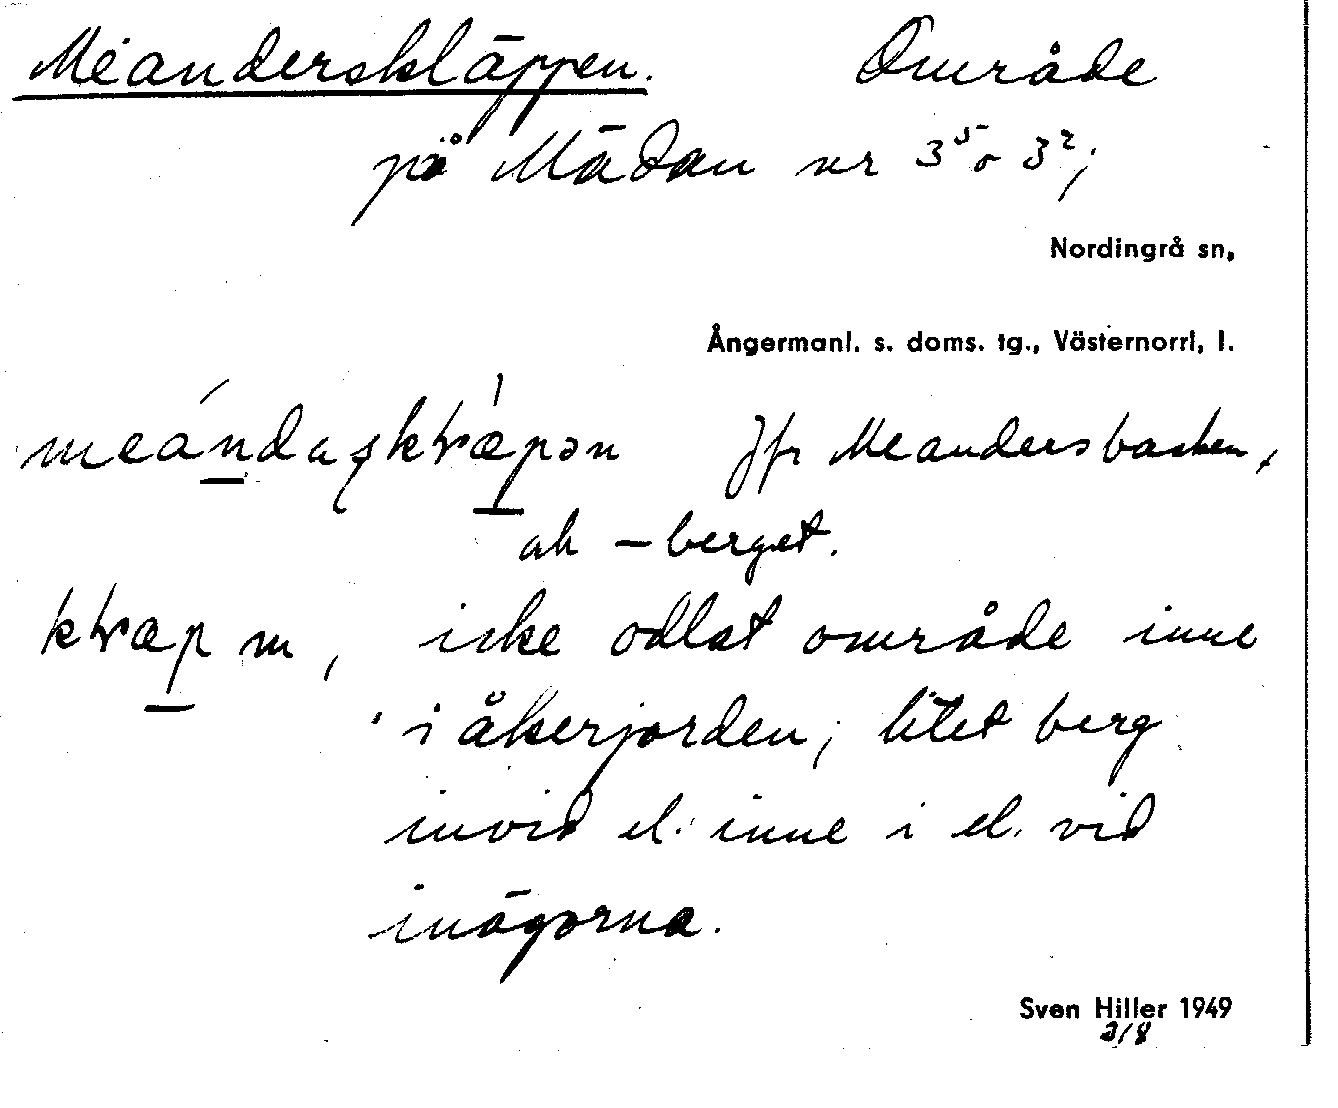 Meanderskläppen. Område
på Mädan nr 3⁵ o 3²;
Nordingrå sn,
Ångermanl. s. doms. tg., Västernorrl, l.
Jfr Meandersbacken,
ak -berget.
m, icke odlat område inne
i åkerjorden; litet berg
invid el. inne i el. vid
inägorna.
Sven Hiller 1949
2/8